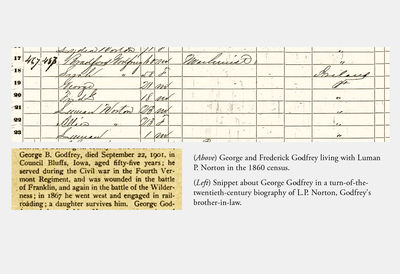 17 457 453 Bradford Godfrey 60 m Machinist "
18 " 58 F Ireland
19 George " 21 m
20 18 m
21 Lyman Norton m "
22 " F "
23 Lyman 1 m "
George B. Godfrey, died September 22, 1901, in
Council Bluffs, Iowa, aged fifty-five years; he
served during the Civil war in the Fourth Ver-
mont Regiment, and was wounded in the battle
of Franklin, and again in the battle of the Wilder-
ness; in 1867 he went west and engaged in rail-
roading; a daughter survives him. George God-
(Above) George and Frederick Godfrey living with Luman
P. Norton in the 1860 census.
(Left) Snippet about George Godfrey in a turn-of-the-
twentieth-century biography of L.P. Norton, Godfrey's
brother-in-law.